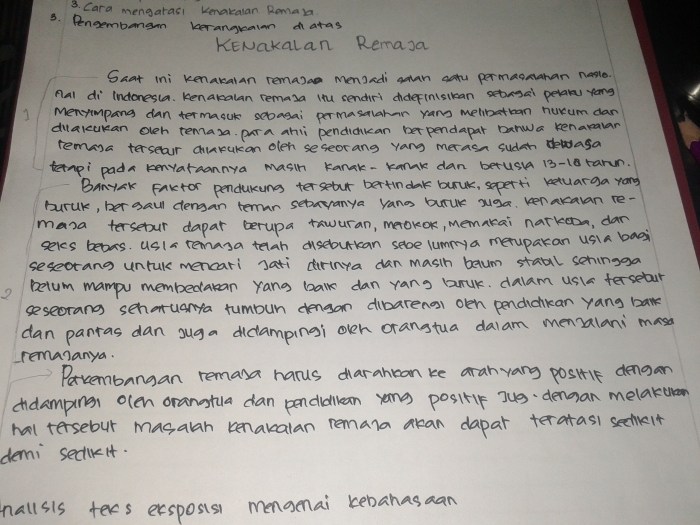 3. Cara mengatasi Kenakalan Remaja.
3. Pengembangan kerangkaian di atas
KENAKALAN Remaja
Saat ini kenakalan remajaa menjadi salah satu permasalahan nasio-
nal di Indonesia. Kenakalan remaja itu sendiri didefinisikan sebagai pelaku yang
1 Menyimpang dan termasuk sebagai permasalahan yang melibatkan hukum dan
dilakukan oleh remaja. para ahli pendidikan berpendapat bahwa kenakalan
remaja tersebut dilakukan oleh seseorang yang merasa sudah dewasa
tetapi pada kenyataannya masih kanak-kanak dan berusia 13-18 tahun.
Banyak faktor pendukung tersebut bertindak buruk, seperti keluarga yang
buruk, bergaul dengan teman sebayanya yang buruk juga. kenakalan re-
maja tersebut dapat berupa tawuran, merokok, memakai narkoba, dan
seks bebas. usia remaja telah disebutkan sebelumnya merupakan usia bagi
seseorang untuk mencari jati dirinya dan masih belum stabil sehingga
2 belum mampu membedakan yang baik dan yang buruk. dalam usia tersebut
seseorang seharusnya tumbuh dengan dibarengi oleh pendidikan yang baik
dan pantas dan juga didampingi oleh orangtua dalam menjalani masa
remajanya.
Perkembangan remaja harus diarahkan ke arah yang positif dengan
didampingi oleh orangtua dan pendidikan yang positif jug. dengan melakukan
hal tersebut masalah kenakalan remaja akan dapat teratasi sedikit
demi sedikit.
nalisis teks eksposisi mengenai kebahasaan